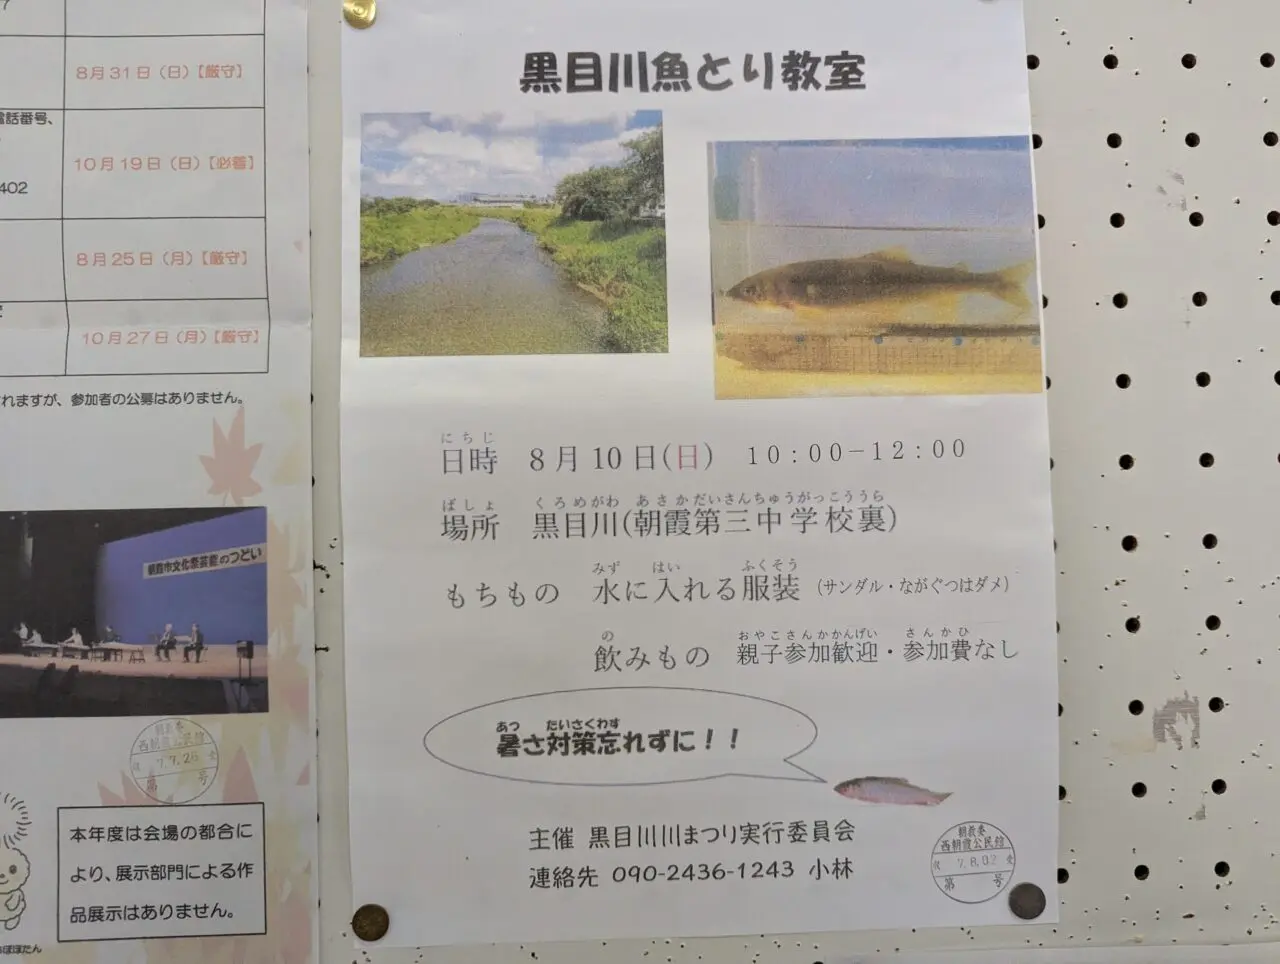 8月31日（日）【厳守】
電話番号、
10月19日（日）【必着】
402
8月25日（月）【厳守】
10月27日（月）【厳守】
れますが、参加者の公募はありません。
朝霞市文化祭芸能のつどい
西朝霞公民館
7.7.26
第 号
本年度は会場の都合に
より、展示部門による作
品展示はありません。
ぽぽたん
黒目川魚とり教室
にちじ
日時 8月10日(日) 10:00－12:00
ばしょ くろめがわ あさかだいさんちゅうがっこううら
場所 黒目川(朝霞第三中学校裏)
みず はい ふくそう
もちもの 水に入れる服装 (サンダル・ながぐつはダメ)
の おやこさんかかんげい さんかひ
飲みもの 親子参加歓迎・参加費なし
あつ たいさくわす
暑さ対策忘れずに！！
主催 黒目川川まつり実行委員会
連絡先 090-2436-1243 小林
西朝霞公民館
7.8.02
第 号